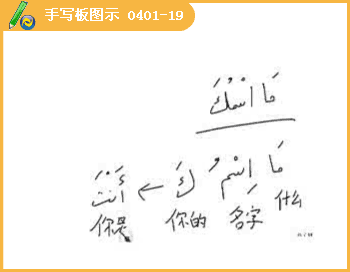 手写板图示 0401-19
مَا اسْمُكَ
مَا اسْم ُ كَ ← أَنْتَ
什么 名字 你的 你是